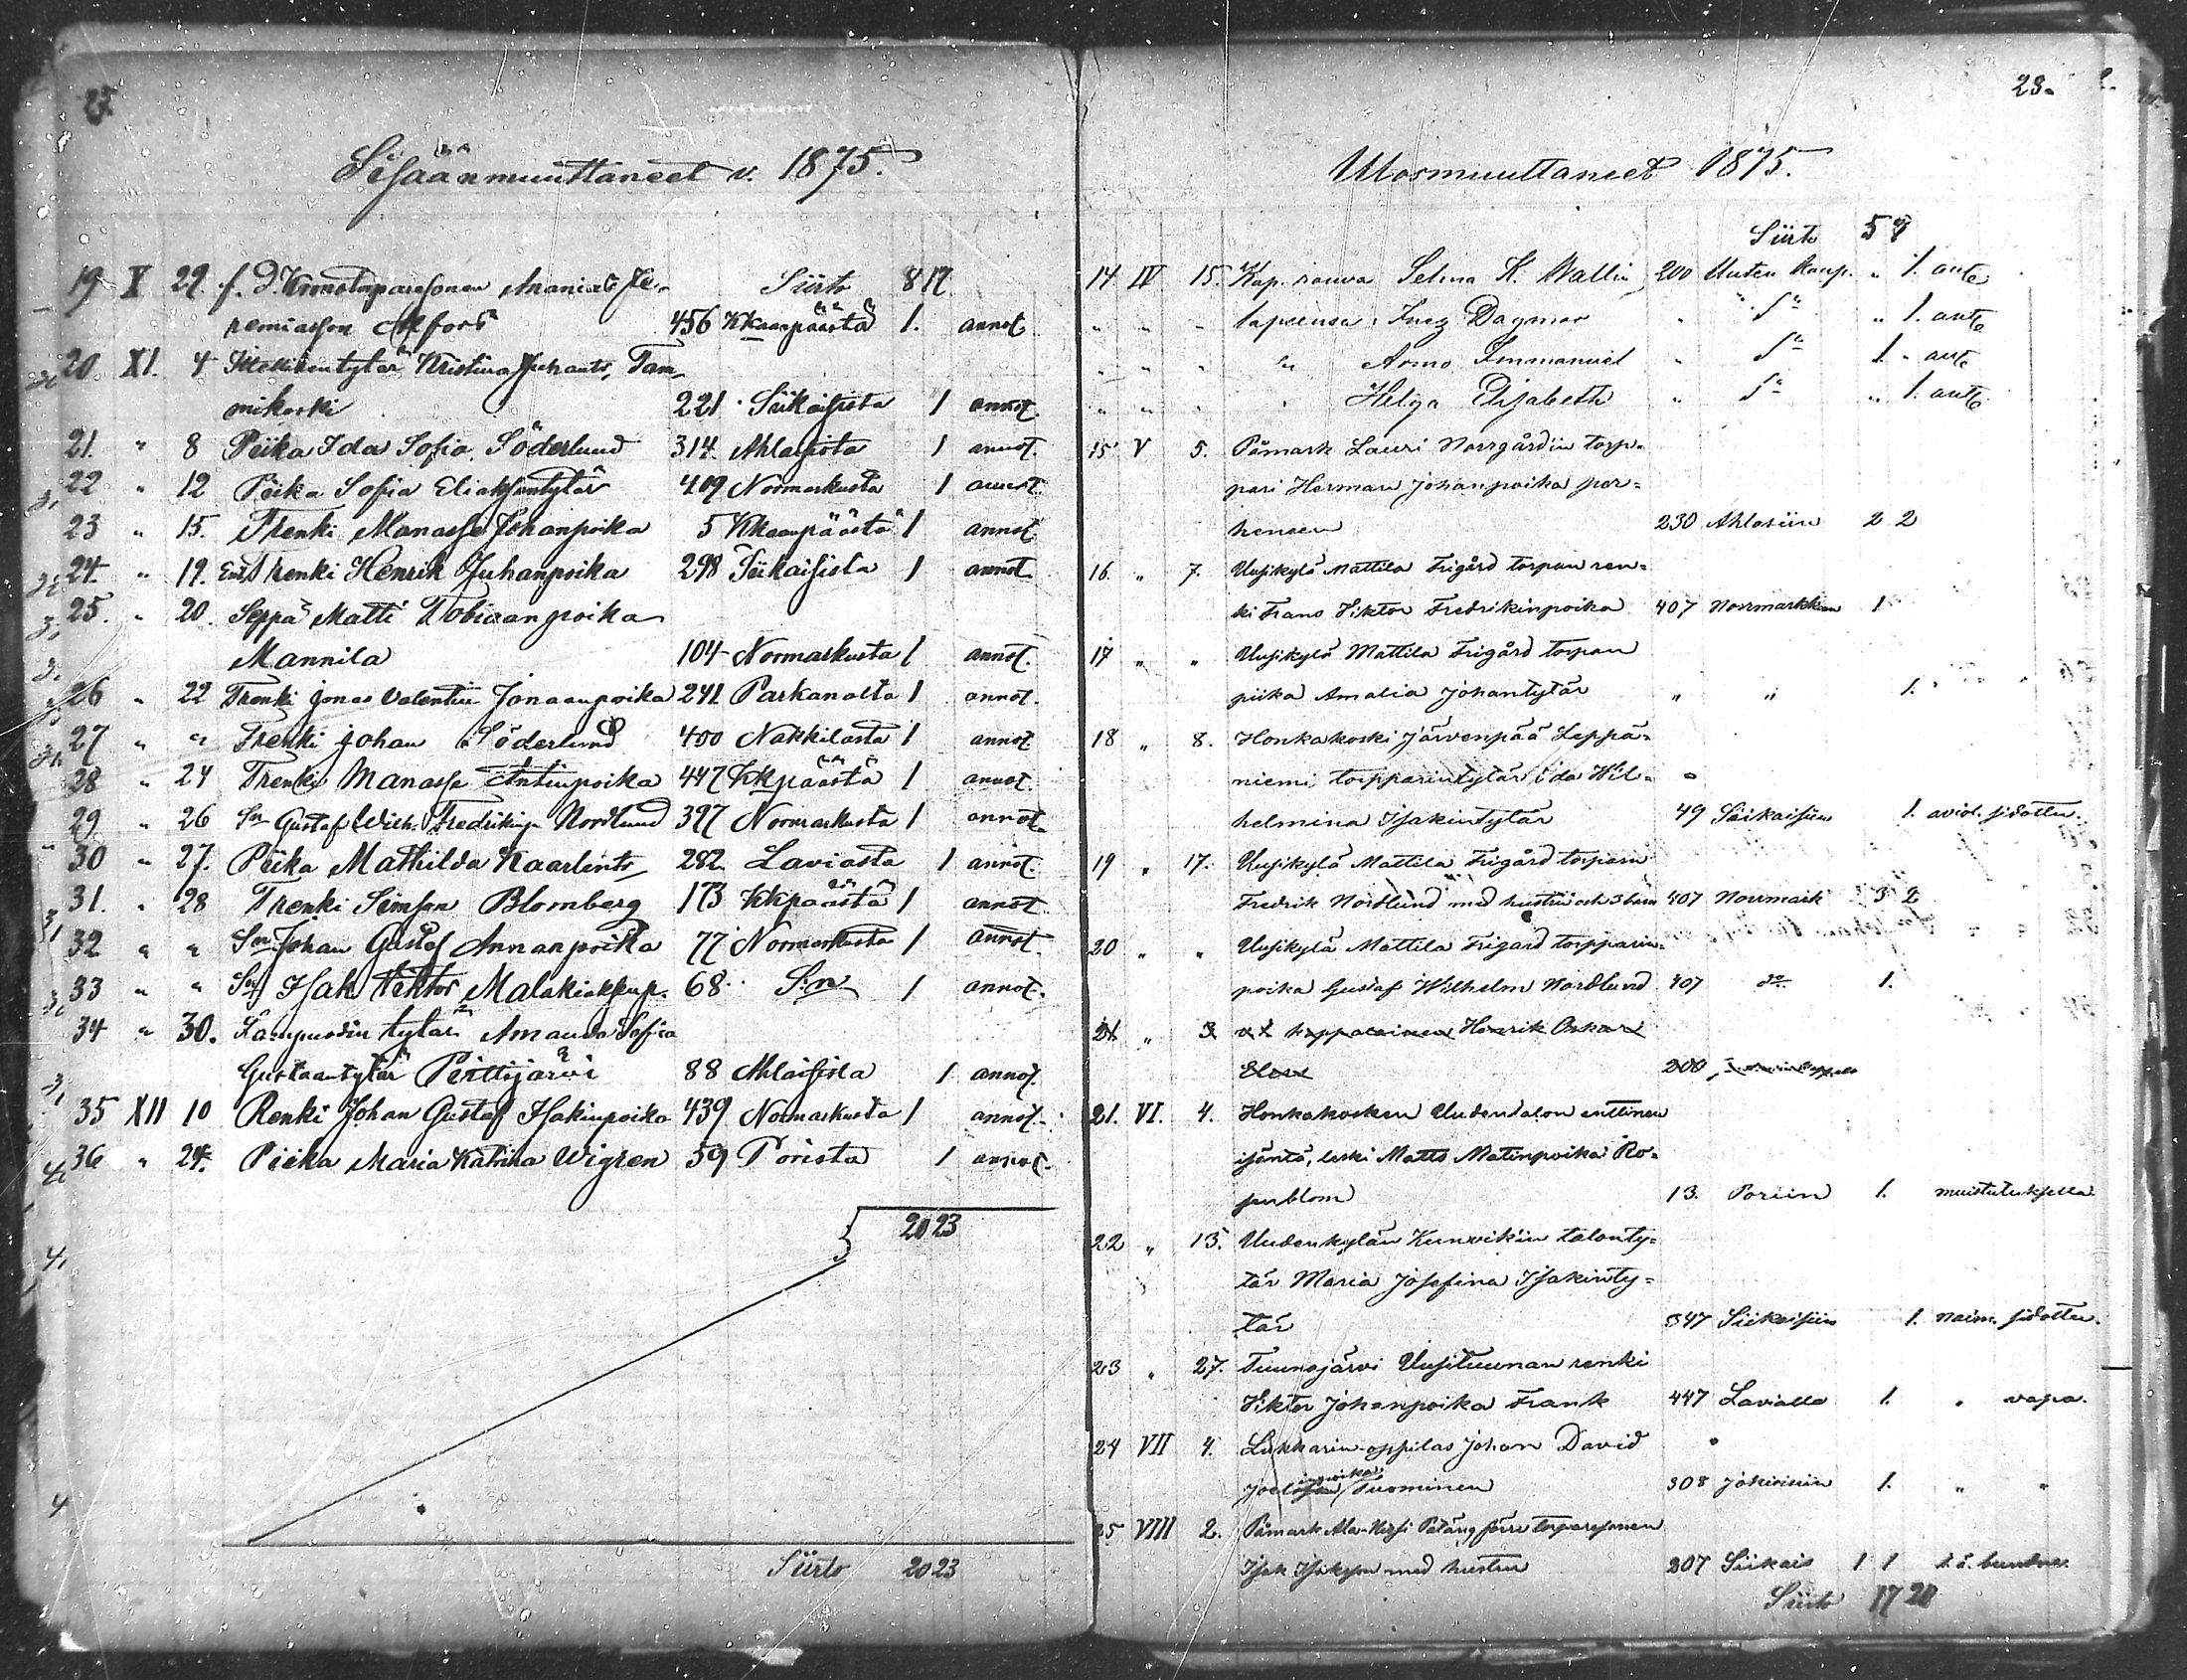 22
Sisäänmuuttaneet v. 1875.
Siirto 8 17
19 X 29. f. d. Kronotorparesonen Ananias Je-
remiasson Alfors 456 Kkaanpäästä 1. annot
20 XI. 4 Itsellisentytär Kristina Juhants. Tam-
mikoski 221 Siikaisista 1 annot.
21. " 8 Piika Ida Sofia Söderlund 314 Ahlaisista 1 annot.
22 " 12 Piika Sofia Eliaksentytär 409 Normarkusta 1 annot.
23 " 15. Trenki Manasse Johanpoika 5 Kkaanpäästä 1 annot
24. " 19. Trenki Henrik Juhanpoika 298 Siikaisista 1 annot.
25. " 20. Seppä Matti Tobiaanpoika
Mannila 104 Normarkusta 1 annot.
26 " 22 Trenki Jonas Valentin Jonaanpoika 241 Parkanolta 1 annot.
27 " " Trenki Johan Söderlund 400 Nakkilasta 1 annot
28 " 24 Trenki Manasse Antinpoika 447 Kkpäästä 1 annot.
29 " 26 Sn Gustaf Wilh. Fredrikinp. Nordlund 397 Normarkusta 1 annot.
30 " 27. Piika Mathilda Kaarlents 282 Laviasta 1 annot.
31. " 28 Trenki Simson Blomberg 173 Kkpäästä 1 annot.
32 " " Sn Johan Gustaf Annanpoika 77 Normarkusta 1 annot.
33 " " Sn Isak Viktor Malakiaksenp. 68 S:n 1 annot.
34 " 30. Lampuodin tytär Amanda Sofia
Gustaantytär Perttijärvi 88 Ahlaisista 1 annot.
35 XII 10 Renki Johan Gustaf Isakinpoika 439 Normarkusta 1 annot.
36 " 24. Piika Maria Katrina Wigren 59 Porista 1 annot.
20 23
Siirto 20 23
23.
Ulosmuuttaneet 1875.
Siirto 5 7
14 IV 15. Kap. rouva Selma K. Wallin 200 Uuteen Kaup. " 1. ante
" " " lapsensa: Inez Dagmar " d:o " 1. ante
" " " " Arno Immanuel " d:o 1. " ante
" " " " Helga Elisabeth " d:o " 1. ante
15 V 5. Påmark Lauri Norrgårdin torp-
pari Herman Johanpoika per-
heneen 230 Ahlaisiin 2 2
16. " 7. Uusikylä Mattila Frigård torpan ren-
ki Frans Viktor Fredrikinpoika 407 Norrmarkkuun 1
17 " " Uusikylä Mattila Frigård torpan
piika Amalia Johantytär " " 1.
18 " 8. Honkakoski Järvenpää Leppä-
niemi torpparintytär Ida Wil-
helmina Isakintytär 49 Siikaisiin 1. aviol. sidottu.
19 " 17. Uusikylä Mattila Frigård torparn
Fredrik Nordlund med hustru och 3 barn 407 Norrmark 3 2
20 " " Uusikylä Mattila Frigård torpparin-
poika Gustaf Wilhelm Nordlund 407 d:o 1.
21 " 3 v. t. kappalainen Henrik Oskar
200
21. VI. 4. Honkakosken Uudentalon entinen
isäntä, leski Matts Matinpoika Ro-
senblom 13. Poriin 1. muistutuksella.
22 " 13. Uudenkylän Kunvikin talonty-
tär Maria Josefina Isakinty-
tär 347 Siikaisiin 1. naim. sidottu.
23 " 27. Tuunajärvi Uusituunan renki
Viktor Johanpoika Frank 447 Lavialle 1. " vapa.
24 VII 4. Lukkarin-oppilas Johan David
Joelinpoika Tuominen 308 Jokioisiin 1. " "
25 VIII 2. Påmark Ala-Kiisi Petäng förre torparesonen
Isak Isaksson med hustru 207 Siikais 1 1
Siirto 17 20